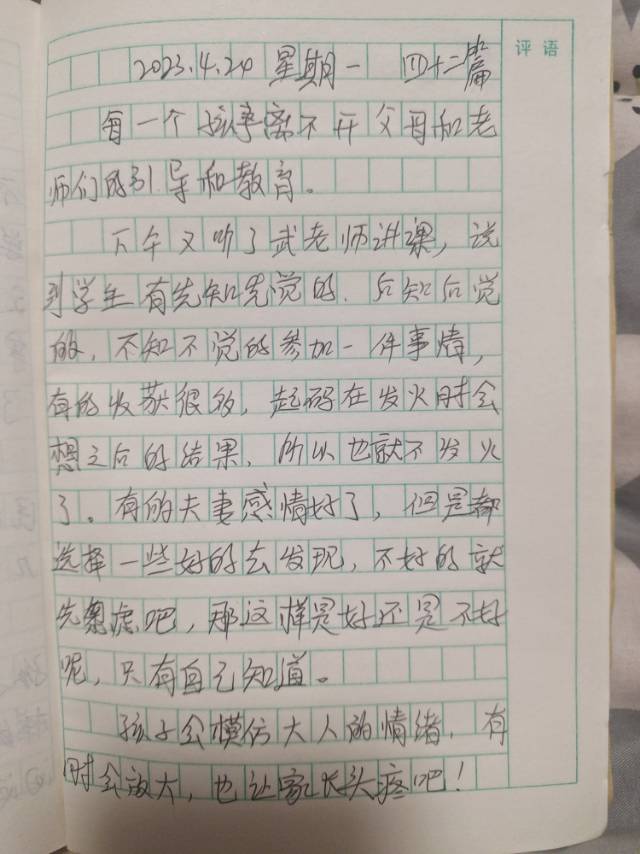 评语
2023.4.24 星期一 四十二篇
每一个孩事离不开父母和老
师们的引导和教育。
下午又听了武老师讲课，说
到学生有先知先觉的、后知后觉
的，不知不觉的参加一件事情，
有的收获很多，起码在发火时会
想之后的结果，所以也就不发火
了。有的夫妻感情好了，但是都
选择一些好的去发现，不好的就
先忽虑吧，那这样是好还是不好
呢，只有自己知道。
孩子会模仿大人的情绪，有
时会放大，也让家长头疼吧！